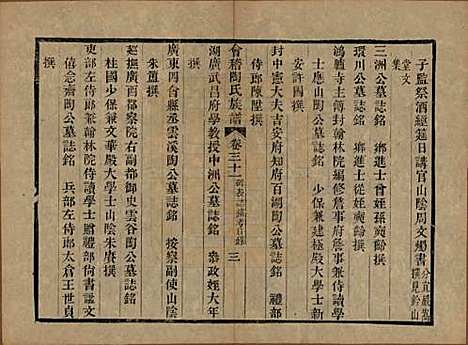 子監祭酒經筵日講官山陰周文燭書 分宜嚴嵩撰見鈐山
堂文集
三洲公墓誌銘 鄉進士曾姪孫奭齡撰
環川公墓誌銘 鄉進士奭齡撰
鴻臚寺主簿封翰林院編修詹事府詹事兼侍讀學
士應山陶公墓誌銘 少保兼建極殿大學士新
安許國撰
封中憲大夫吉安府知府百湖陶公墓誌銘 禮部
侍郎陳陞撰
會稽陶氏族譜 卷三十一 三
湖廣武昌府學教授中洲公墓誌銘 泰政姪大年
撰
廣東四會縣丞雲溪陶公墓誌銘 按察副使山陰
朱簠撰
巡撫廣西都察院右副都御史雲谷陶公墓誌銘
柱國少保兼文華殿大學士山陰朱賡撰
吏部左侍郎兼翰林院侍讀學士贈禮部尚書諡文
僖念齋陶公墓誌銘 兵部左侍郎太倉王世貞
撰